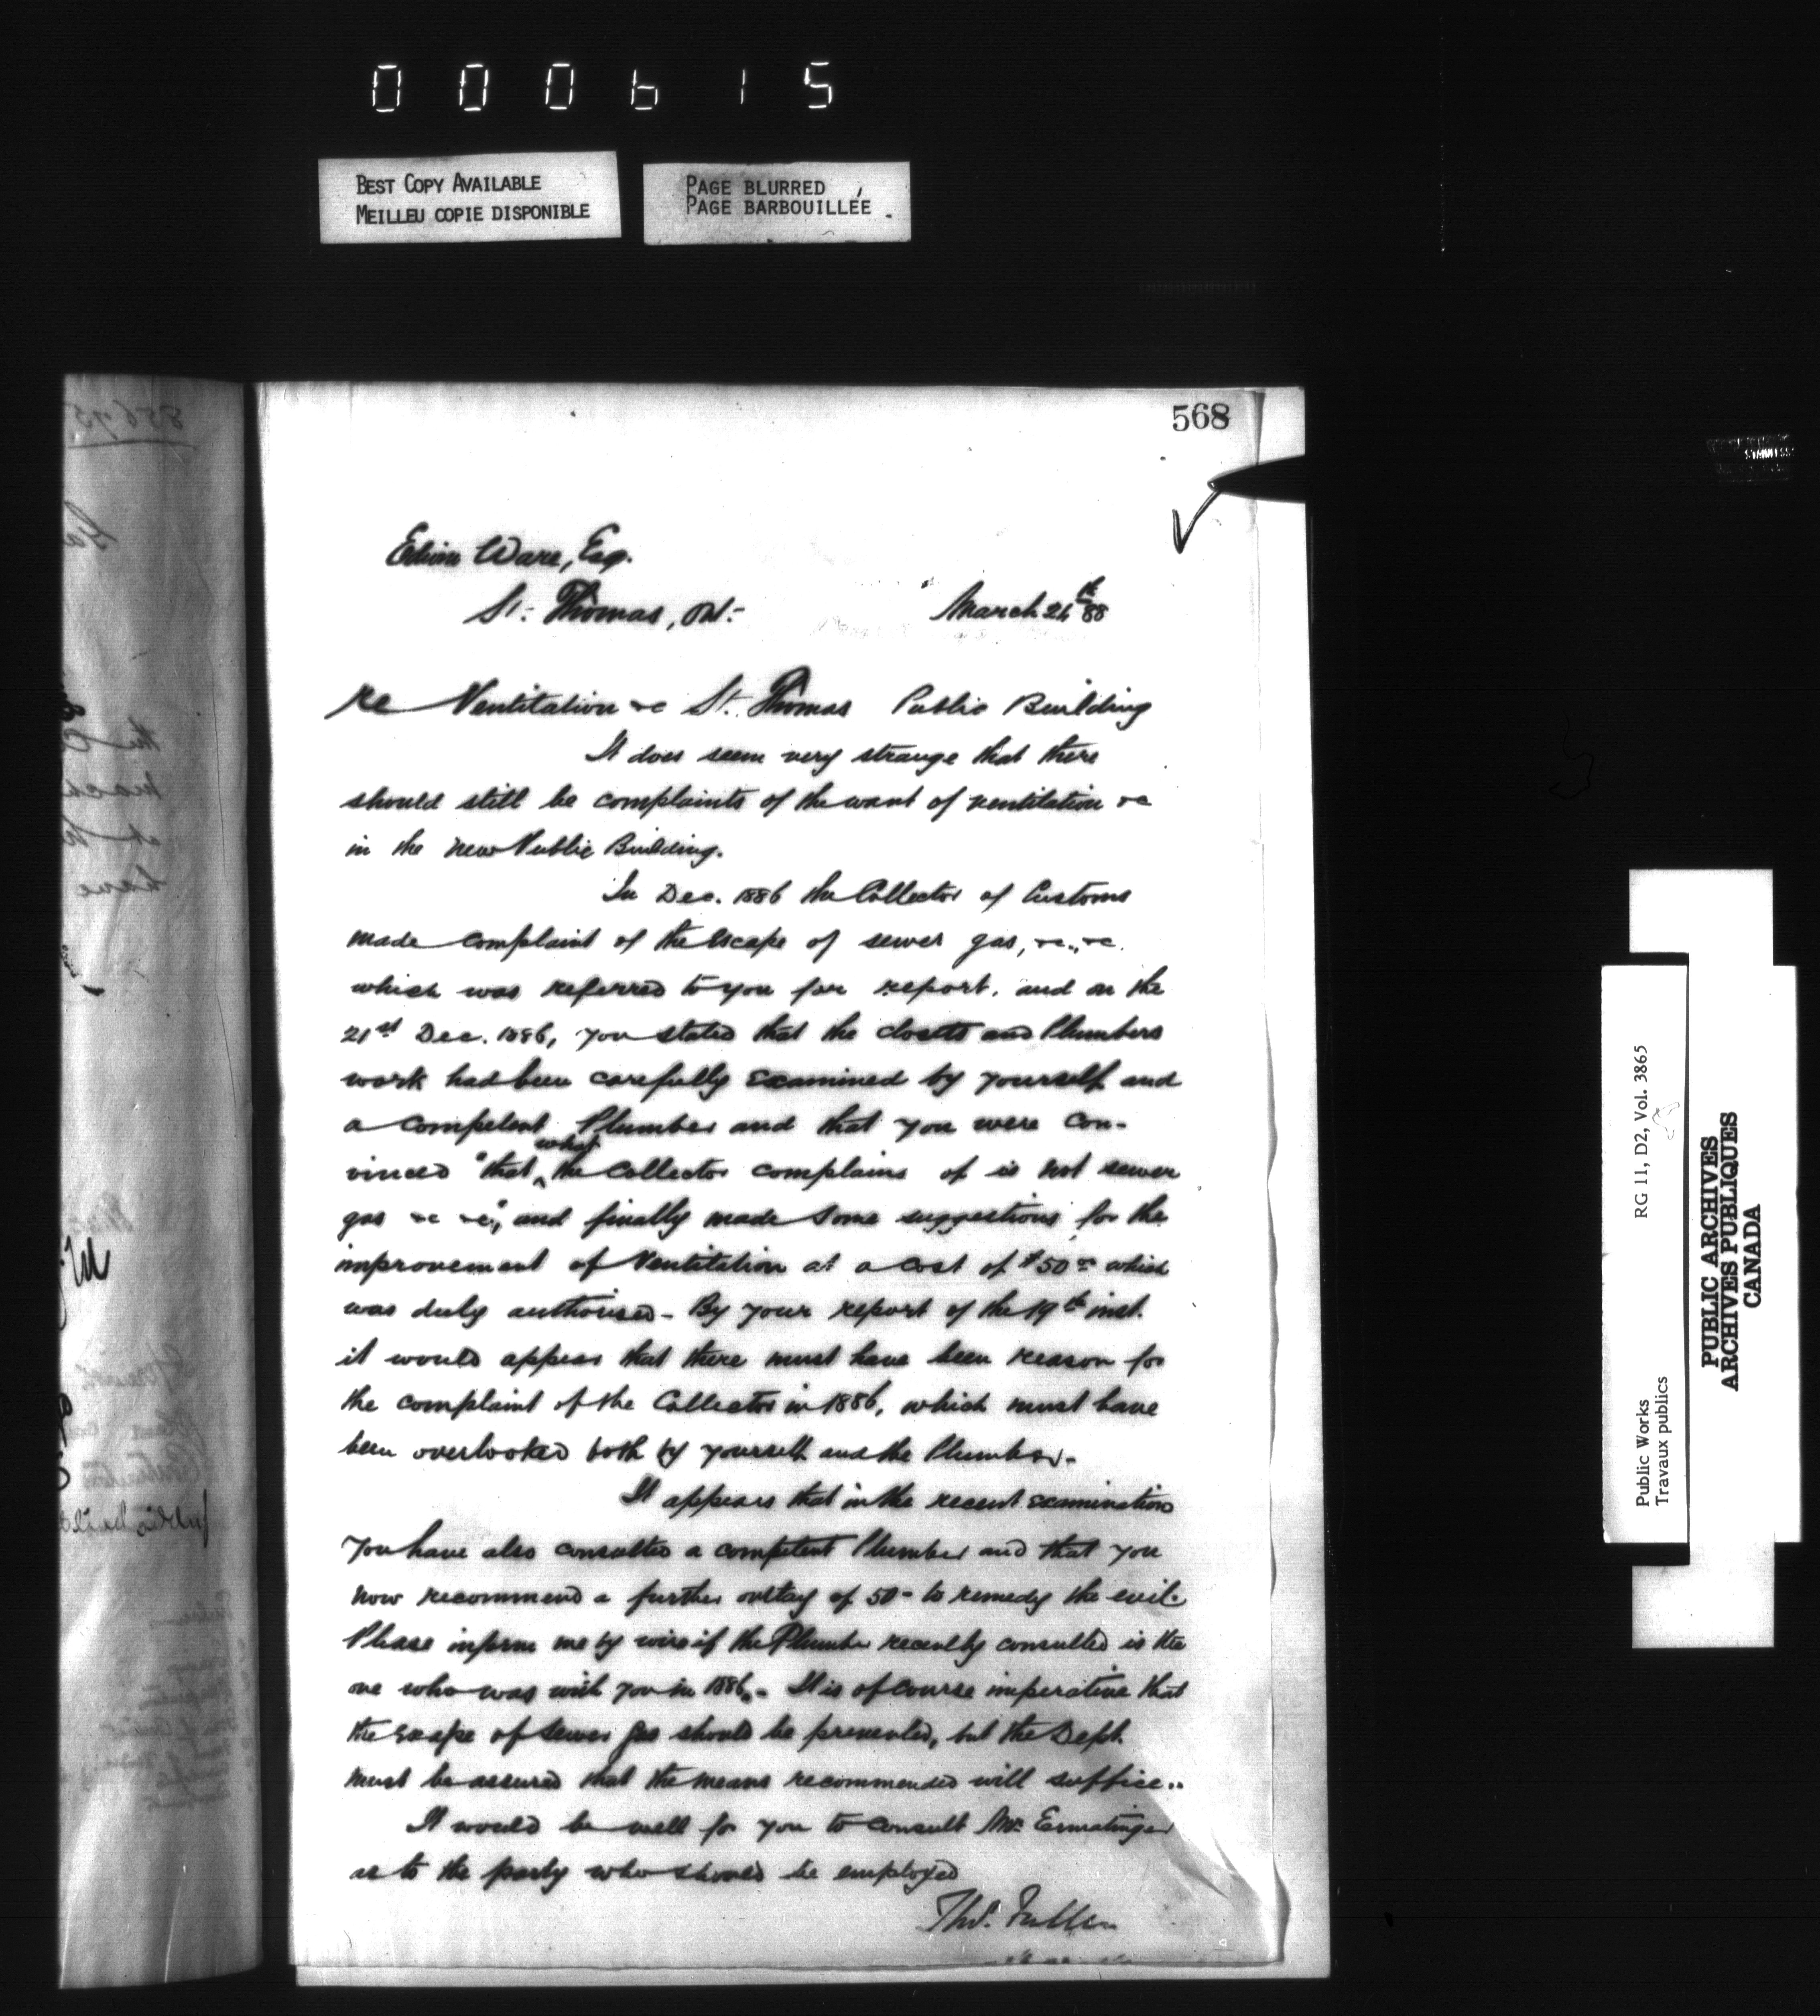 000615
BEST COPY AVAILABLE
MEILLEU COPIE DISPONIBLE
PAGE BLURRED
PAGE BARBOUILLÉE
568
Edwin Ware, Esq.
St. Thomas, Ont.
March 24th 88
Re Ventilation &c St. Thomas Public Building
It does seem very strange that there
should still be complaints of the want of ventilation &c
in the new Public Building.
In Dec. 1886 the Collector of Customs
made complaint of the escape of sewer gas, &c., &c.
which was referred to you for report, and on the
21st Dec. 1886, you stated that the closets and Plumbers
work had been carefully examined by yourself and
a competent Plumber and that you were con-
vinced "that what the Collector complains of is not sewer
gas &c &c", and finally made some suggestions for the
improvement of Ventilation at a cost of $50 which
was duly authorised - By your report of the 19th inst.
it would appear that there must have been reason for
the complaint of the Collector in 1886, which must have
been overlooked both by yourself and the Plumber.-
It appears that in the recent examination
you have also consulted a competent Plumber and that you
now recommend a further outlay of 50- to remedy the evil.
Please inform me by wire if the Plumber recently consulted is the
one who was with you in 1886.- It is of course imperative that
the escape of sewer gas should be prevented, but the Dept.
must be assured that the means recommended will suffice..
It would be well for you to consult Mr. Ermatinger
as to the party who should be employed
Thos. Fuller
Public Works
Travaux publics
RG 11, D2, Vol. 3865
PUBLIC ARCHIVES
ARCHIVES PUBLIQUES
CANADA